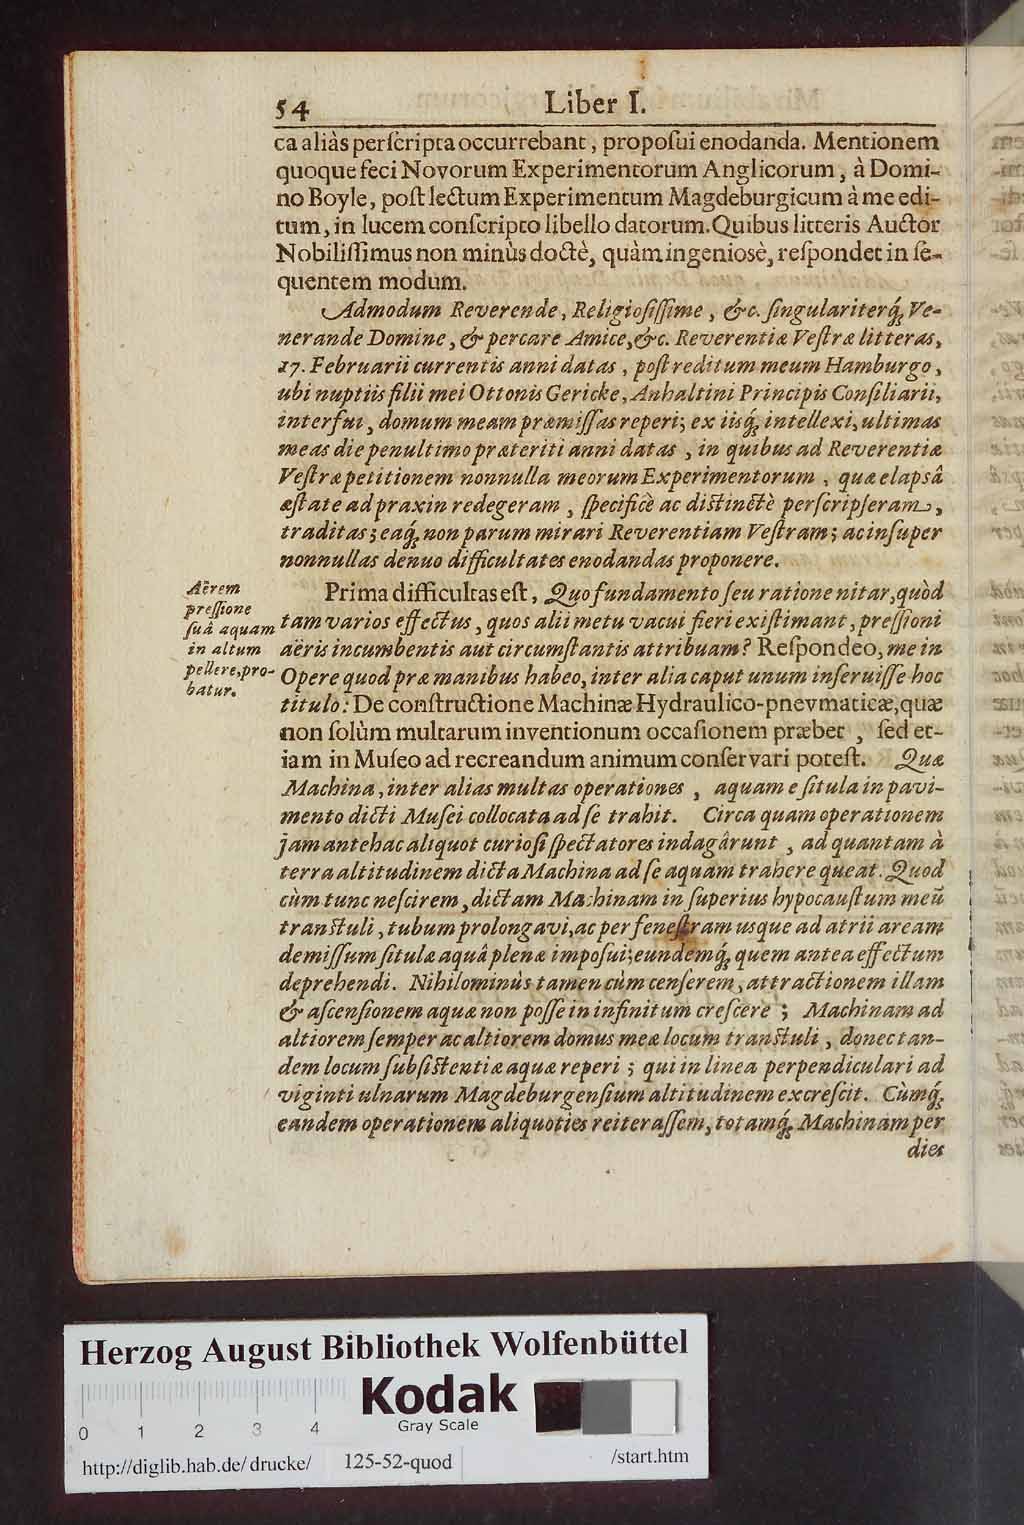 54 Liber I.
ca aliàs perſcripta occurrebant, propoſui enodanda. Mentionem
quoque feci Novorum Experimentorum Anglicorum, à Domi-
no Boyle, poſt lectum Experimentum Magdeburgicum à me edi-
tum, in lucem conſcripto libello datorum. Quibus litteris Auctor
Nobiliſſimus non minùs doctè, quàm ingeniosè, reſpondet in ſe-
quentem modum.
Admodum Reverende, Religioſiſſime, &c. ſingulariterq́; Ve-
nerande Domine, & percare Amice, &c. Reverentiæ Veſtræ litteras,
17. Februarii currentis anni datas, poſt reditum meum Hamburgo,
ubi nuptiis filii mei Ottonis Gericke, Anhaltini Principis Conſiliarii,
interfui, domum meam præmiſſas reperi; ex iisq́; intellexi, ultimas
meas die penultimo præteriti anni datas, in quibus ad Reverentiæ
Veſtræ petitionem nonnulla meorum Experimentorum, quæ elapsâ
æſtate ad praxin redegeram, ſpecificè ac diſtinctè perſcripſeram,
traditas; eaq́; non parum mirari Reverentiam Veſtram; ac inſuper
nonnullas denuo difficultates enodandas proponere.
Aërem
preſſione
ſuâ aquam
in altum
pellere, pro-
batur.
Prima difficultas eſt, Quo fundamento ſeu ratione nitar, quòd
tam varios effectus, quos alii metu vacui fieri exiſtimant, preſſioni
aëris incumbentis aut circumſtantis attribuam? Reſpondeo, me in
Opere quod præ manibus habeo, inter alia caput unum inſeruiſſe hoc
titulo: De conſtructione Machinæ Hydraulico-pnevmaticæ, quæ
non ſolùm multarum inventionum occaſionem præbet, ſed et-
iam in Muſeo ad recreandum animum conſervari poteſt. Quæ
Machina, inter alias multas operationes, aquam e ſitula in pavi-
mento dicti Muſei collocata ad ſe trahit. Circa quam operationem
jam antehac aliquot curioſi ſpectatores indagârunt, ad quantam à
terra altitudinem dicta Machina ad ſe aquam trahere queat. Quod
cùm tunc neſcirem, dictam Machinam in ſuperius hypocauſtum meũ
tranſtuli, tubum prolongavi, ac per feneſtram usque ad atrii aream
demiſſum ſitulæ aquâ plenæ impoſui; eundemq́; quem antea effectum
deprehendi. Nihilominùs tamen cùm cenſerem, attractionem illam
& aſcenſionem aquæ non poſſe in infinitum creſcere; Machinam ad
altiorem ſemper ac altiorem domus meæ locum tranſtuli, donec tan-
dem locum ſubſiſtentiæ aquæ reperi; qui in linea perpendiculari ad
viginti ulnarum Magdeburgenſium altitudinem excreſcit. Cùmq́;
eandem operationem aliquoties reiteraſſem, totamq́; Machinam per
dies
Herzog August Bibliothek Wolfenbüttel
Kodak
Gray Scale
0 1 2 3 4
http://diglib.hab.de/drucke/ 125-52-quod /start.htm